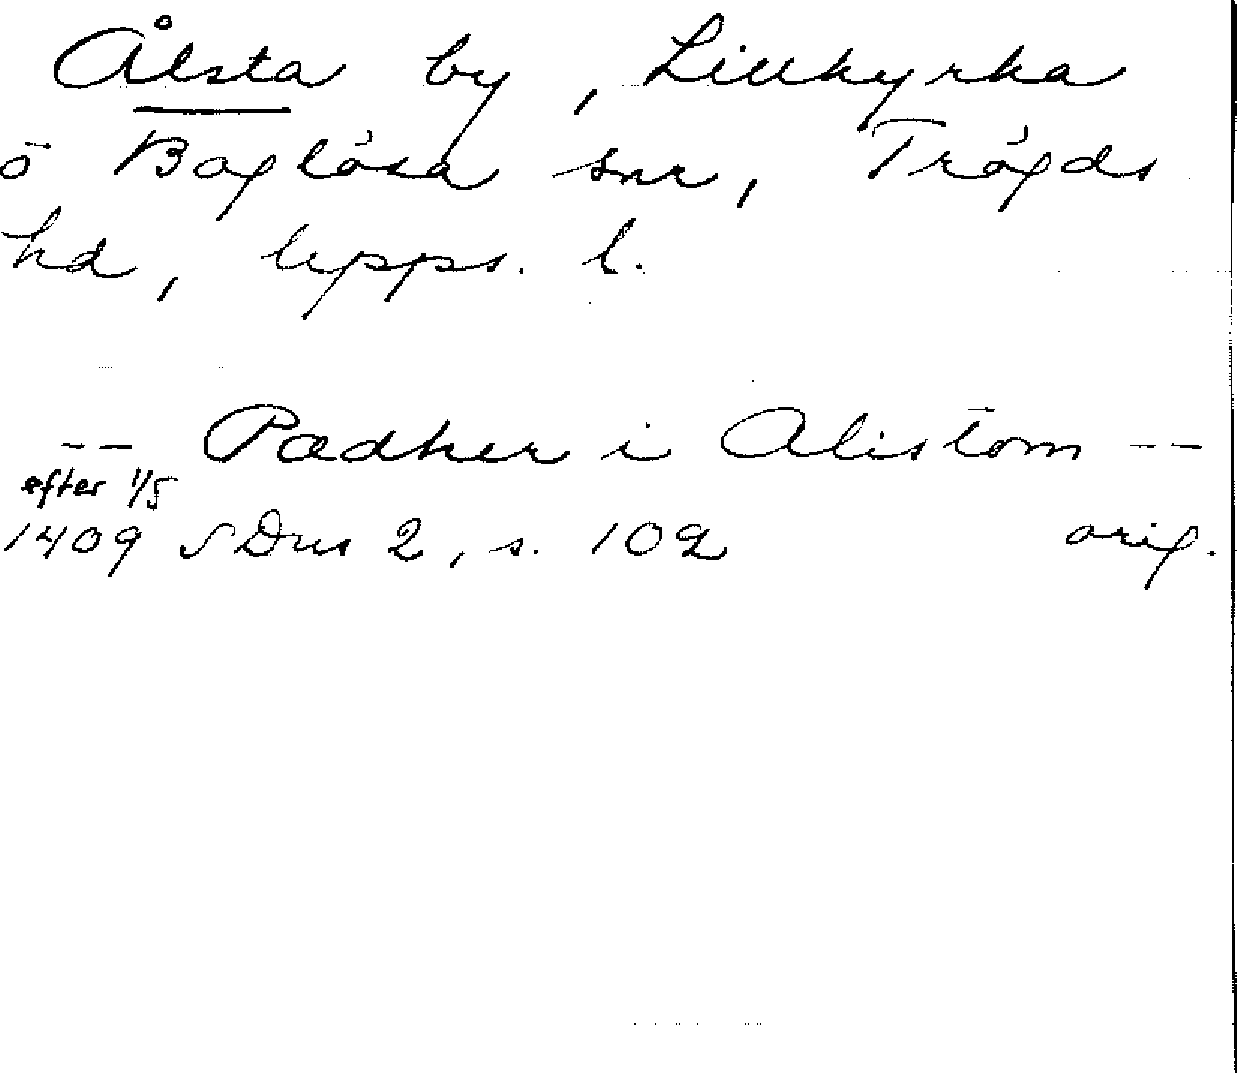 Ålsta by, Lillkyrka
o Boglösa snr, Trögds
hd, Upps. l.
-- Pædher i Alistom --
efter 1/5
1409 SDns 2, s. 102 orig.